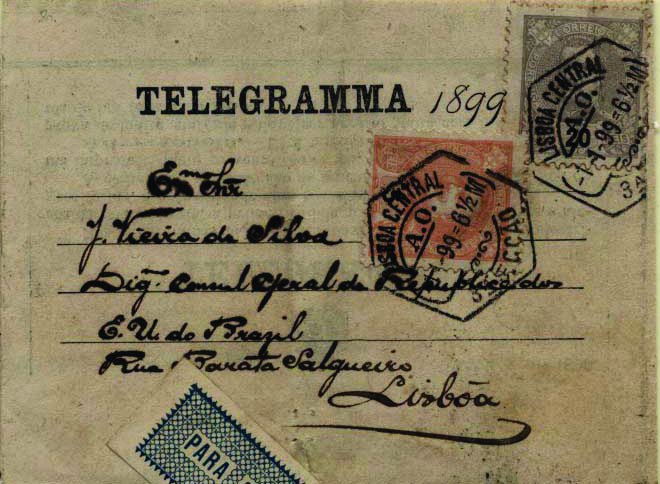 CORREIO
TELEGRAMMA 1899
LISBOA CENTRAL
A.O.
1-1-99=6½M
3A
Exmo Snr
J. Vieira da Silva
LISBOA CENTRAL
A.O.
1-99=6½M
3A SECÇÃO
Digº Consul Geral da Republica dos
E. U. do Brazil
Rua Barata Salgueiro
Lisbôa
PARA